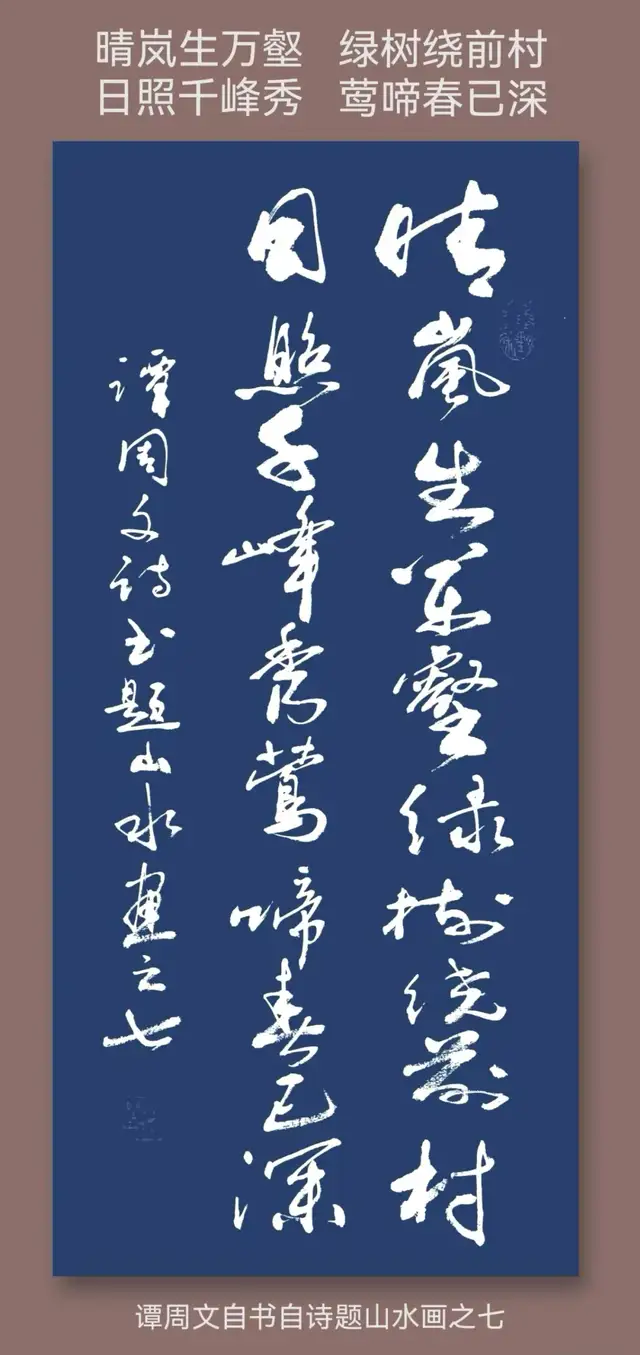 晴岚生万壑 绿树绕前村
日照千峰秀 莺啼春已深
晴嵐生万壑绿树绕前村
日照千峰秀莺啼春已深
谭周文诗书题山水画之七
谭周文自书自诗题山水画之七